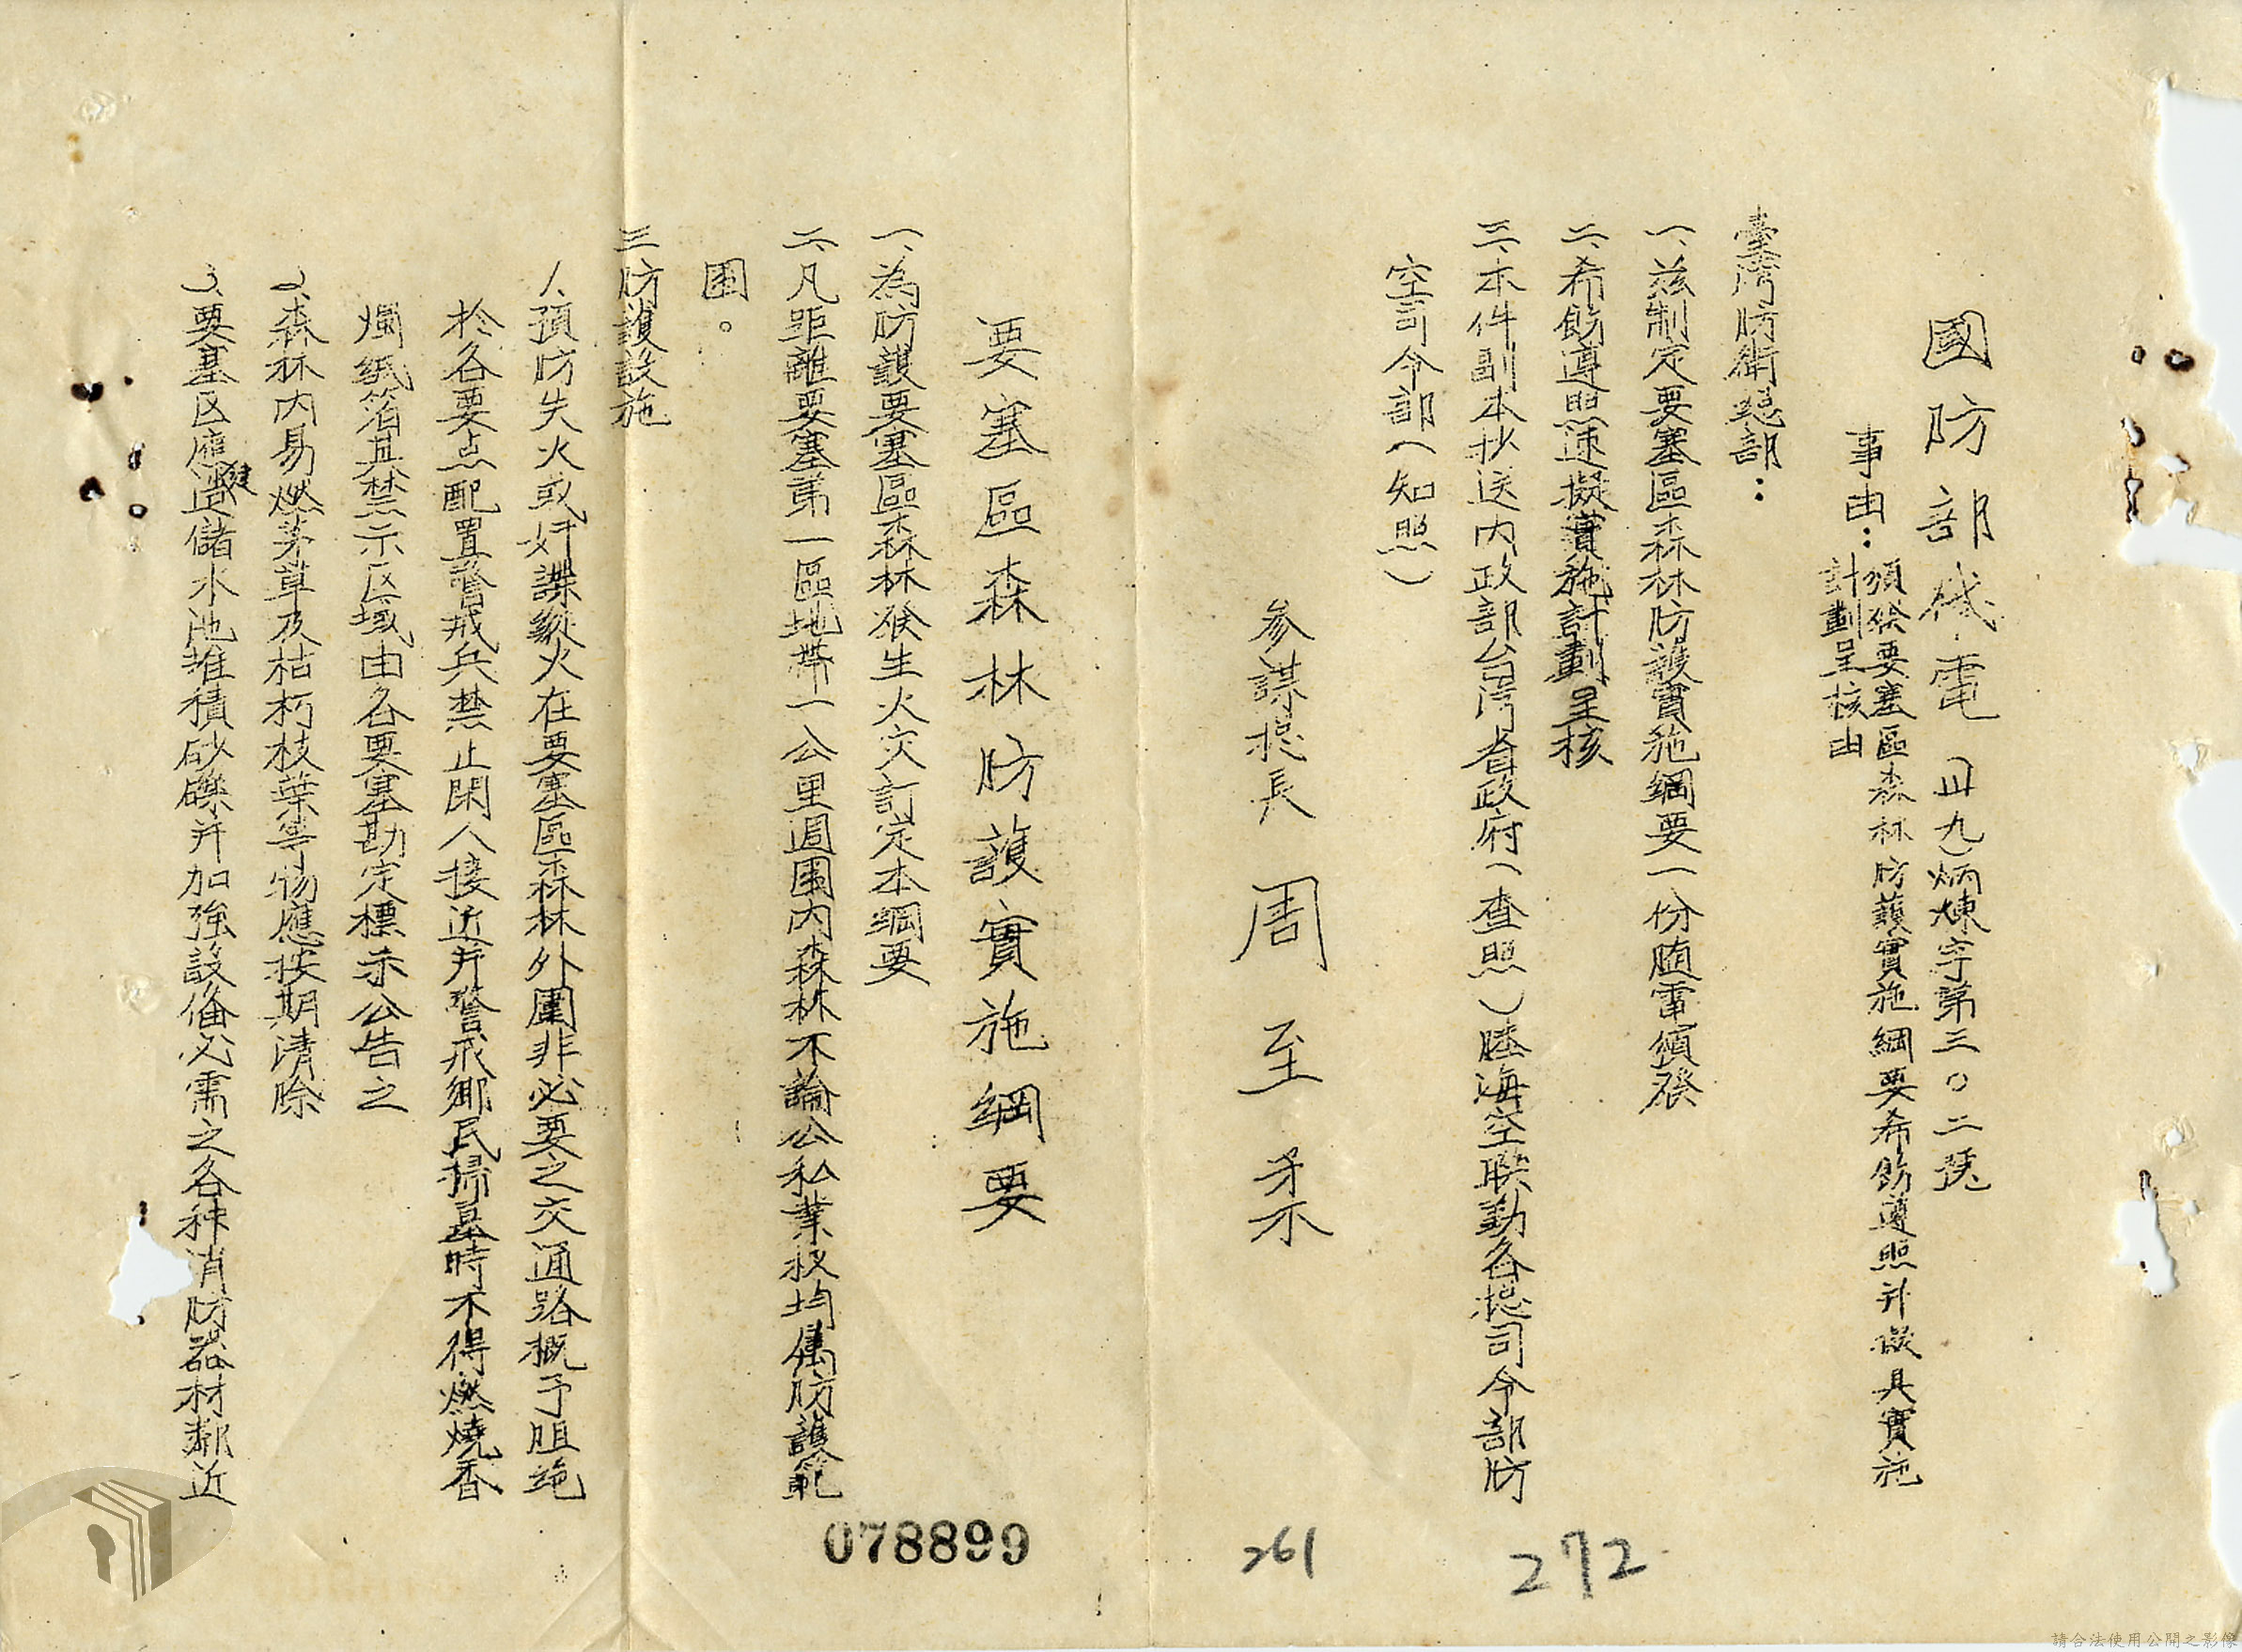 國防部代電 (卅九)炳煉字第三〇二號
事由：頒發要塞區森林防護實施綱要希飭遵照并擬具實施
計劃呈核由
臺灣防衛總部：
一、茲制定要塞區森林防護實施綱要一份随電頒發
二、希飭遵照速擬實施計劃呈核
三、本件副本抄送内政部台湾省政府(查照)陸海空联勤各總司令部防
空司令部(知照)
参謀總長 周至柔
要塞區森林防護實施綱要
一、為防護要塞區森林發生火灾訂定本綱要
二、凡距離要塞第一區地帶一公里週圍内森林不論公私業权均屬防護範
圍。
三防護設施
1、預防失火或奸諜縱火在要塞區森林外圍非必要之交通路概予阻绝
於各要点配置警戒兵禁止閑人接近并警戒鄉民掃墓時不得燃燒香
燭紙箔其禁示区域由各要塞勘定標示公告之
2、森林内易燃茅草及枯朽枝葉等物應按期清除
3、要塞区應建儲水池堆積砂礫并加強設备必需之各种消防器材鄰近
078899
261
272
請合法使用公開之影像